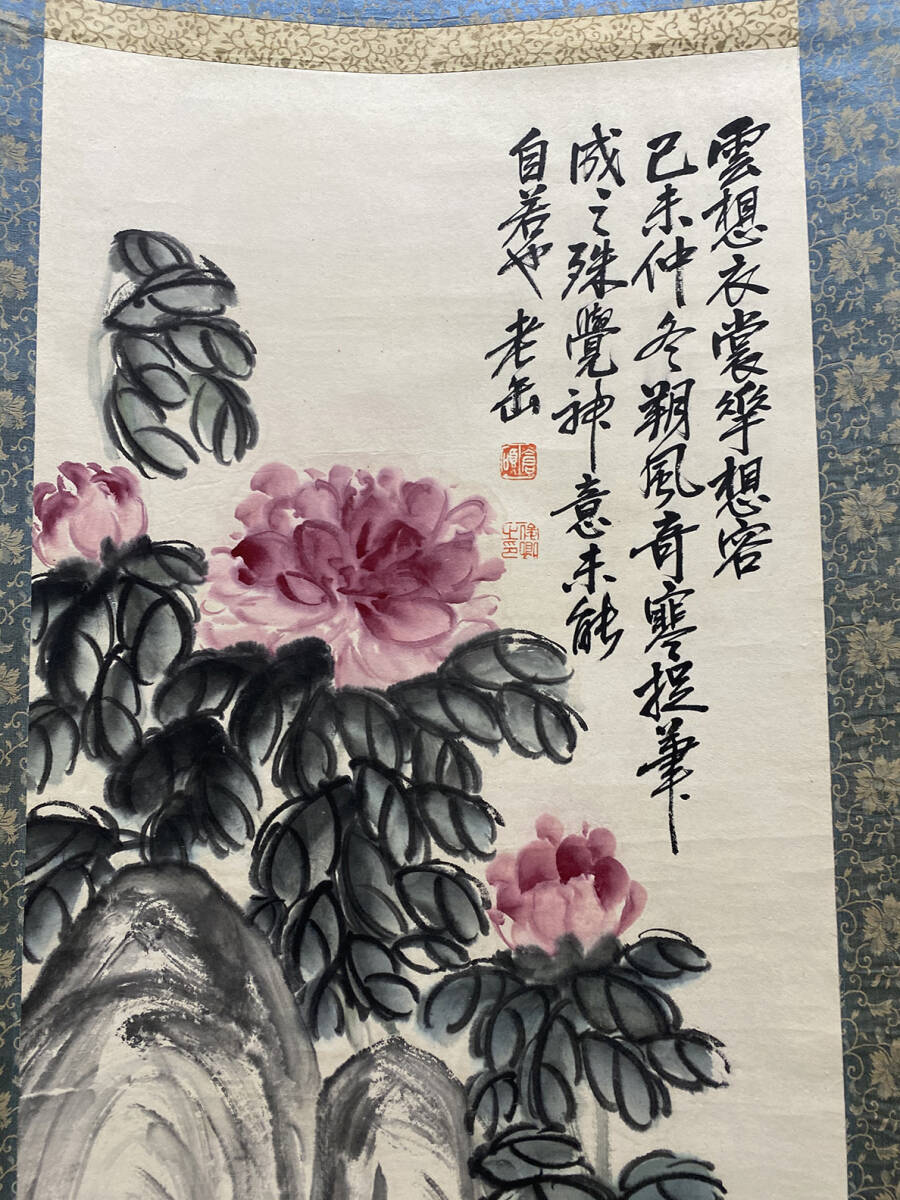 雲想衣裳華想容
己未仲冬朔風奇寒捉筆
成之殊覺神意未能
自若也 老缶
倉碩
俊卿之印